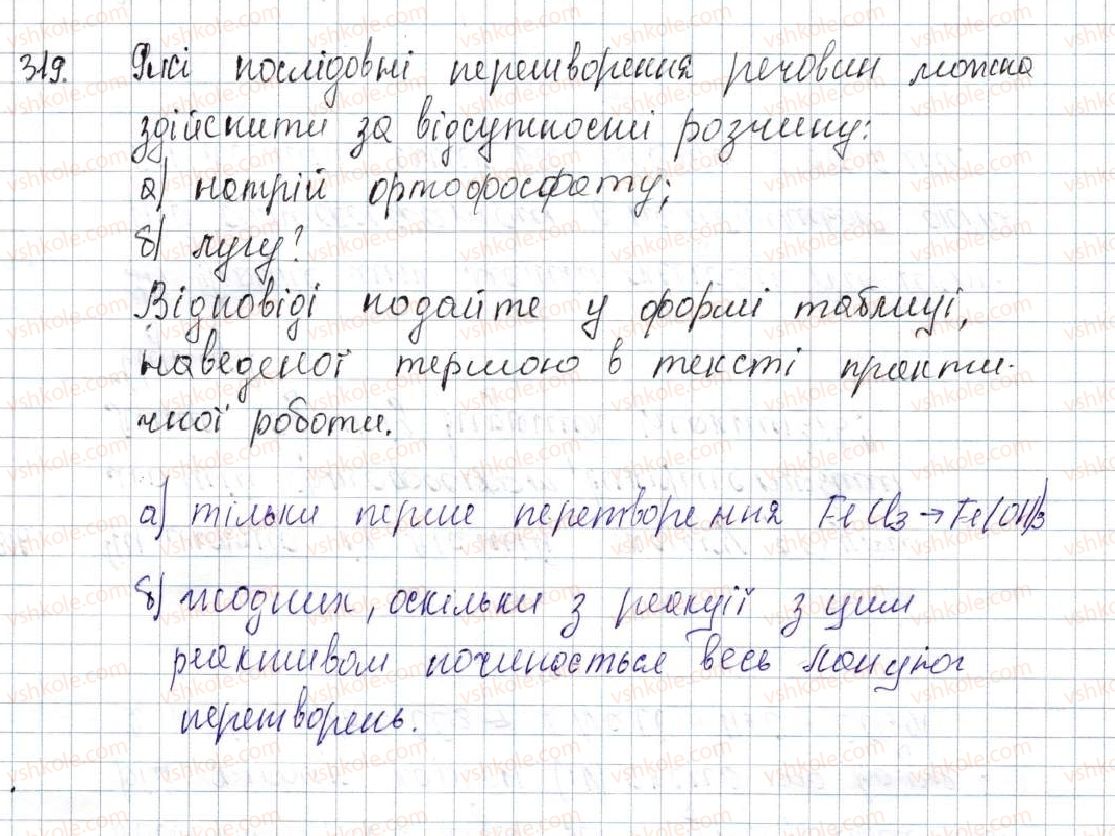 319. Які послідовні перетворення речовин можна
здійснити за відсутності розчину:
а) натрій ортофосфату;
б) лугу?
Відповіді подайте у формі таблиці,
наведеної термою в тексті практи-
чної роботи.
а) тільки перше перетворення FeCl₃ → Fe(OH)₃
б) жодних, оскільки з реакції з цим
реактивом починається весь ланцюг
перетворень.